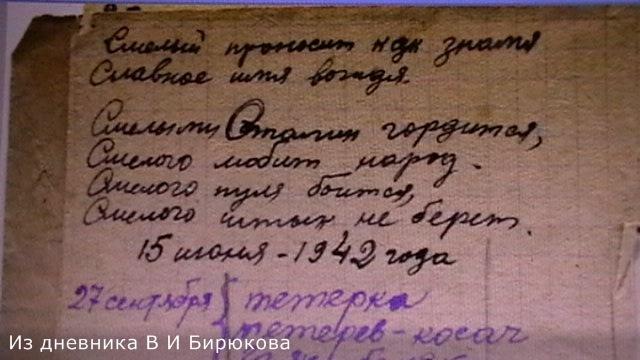 Смелый проносит как знамя
Славное имя вождя.
Смелыми Сталин гордится,
Смелого любит народ.
Смелого пуля боится,
Смелого штык не берет.
15 июня - 1942 года
27 сентября { тетерка
тетерев - косач
Из дневника В И Бирюкова